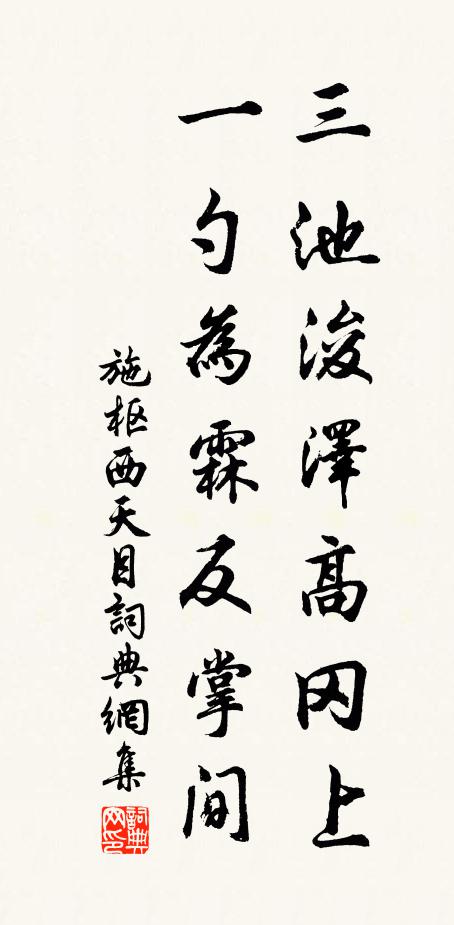 三池浚澤高冈上
一勺為霖反掌間
施枢西天目詞典網集
詞典网印